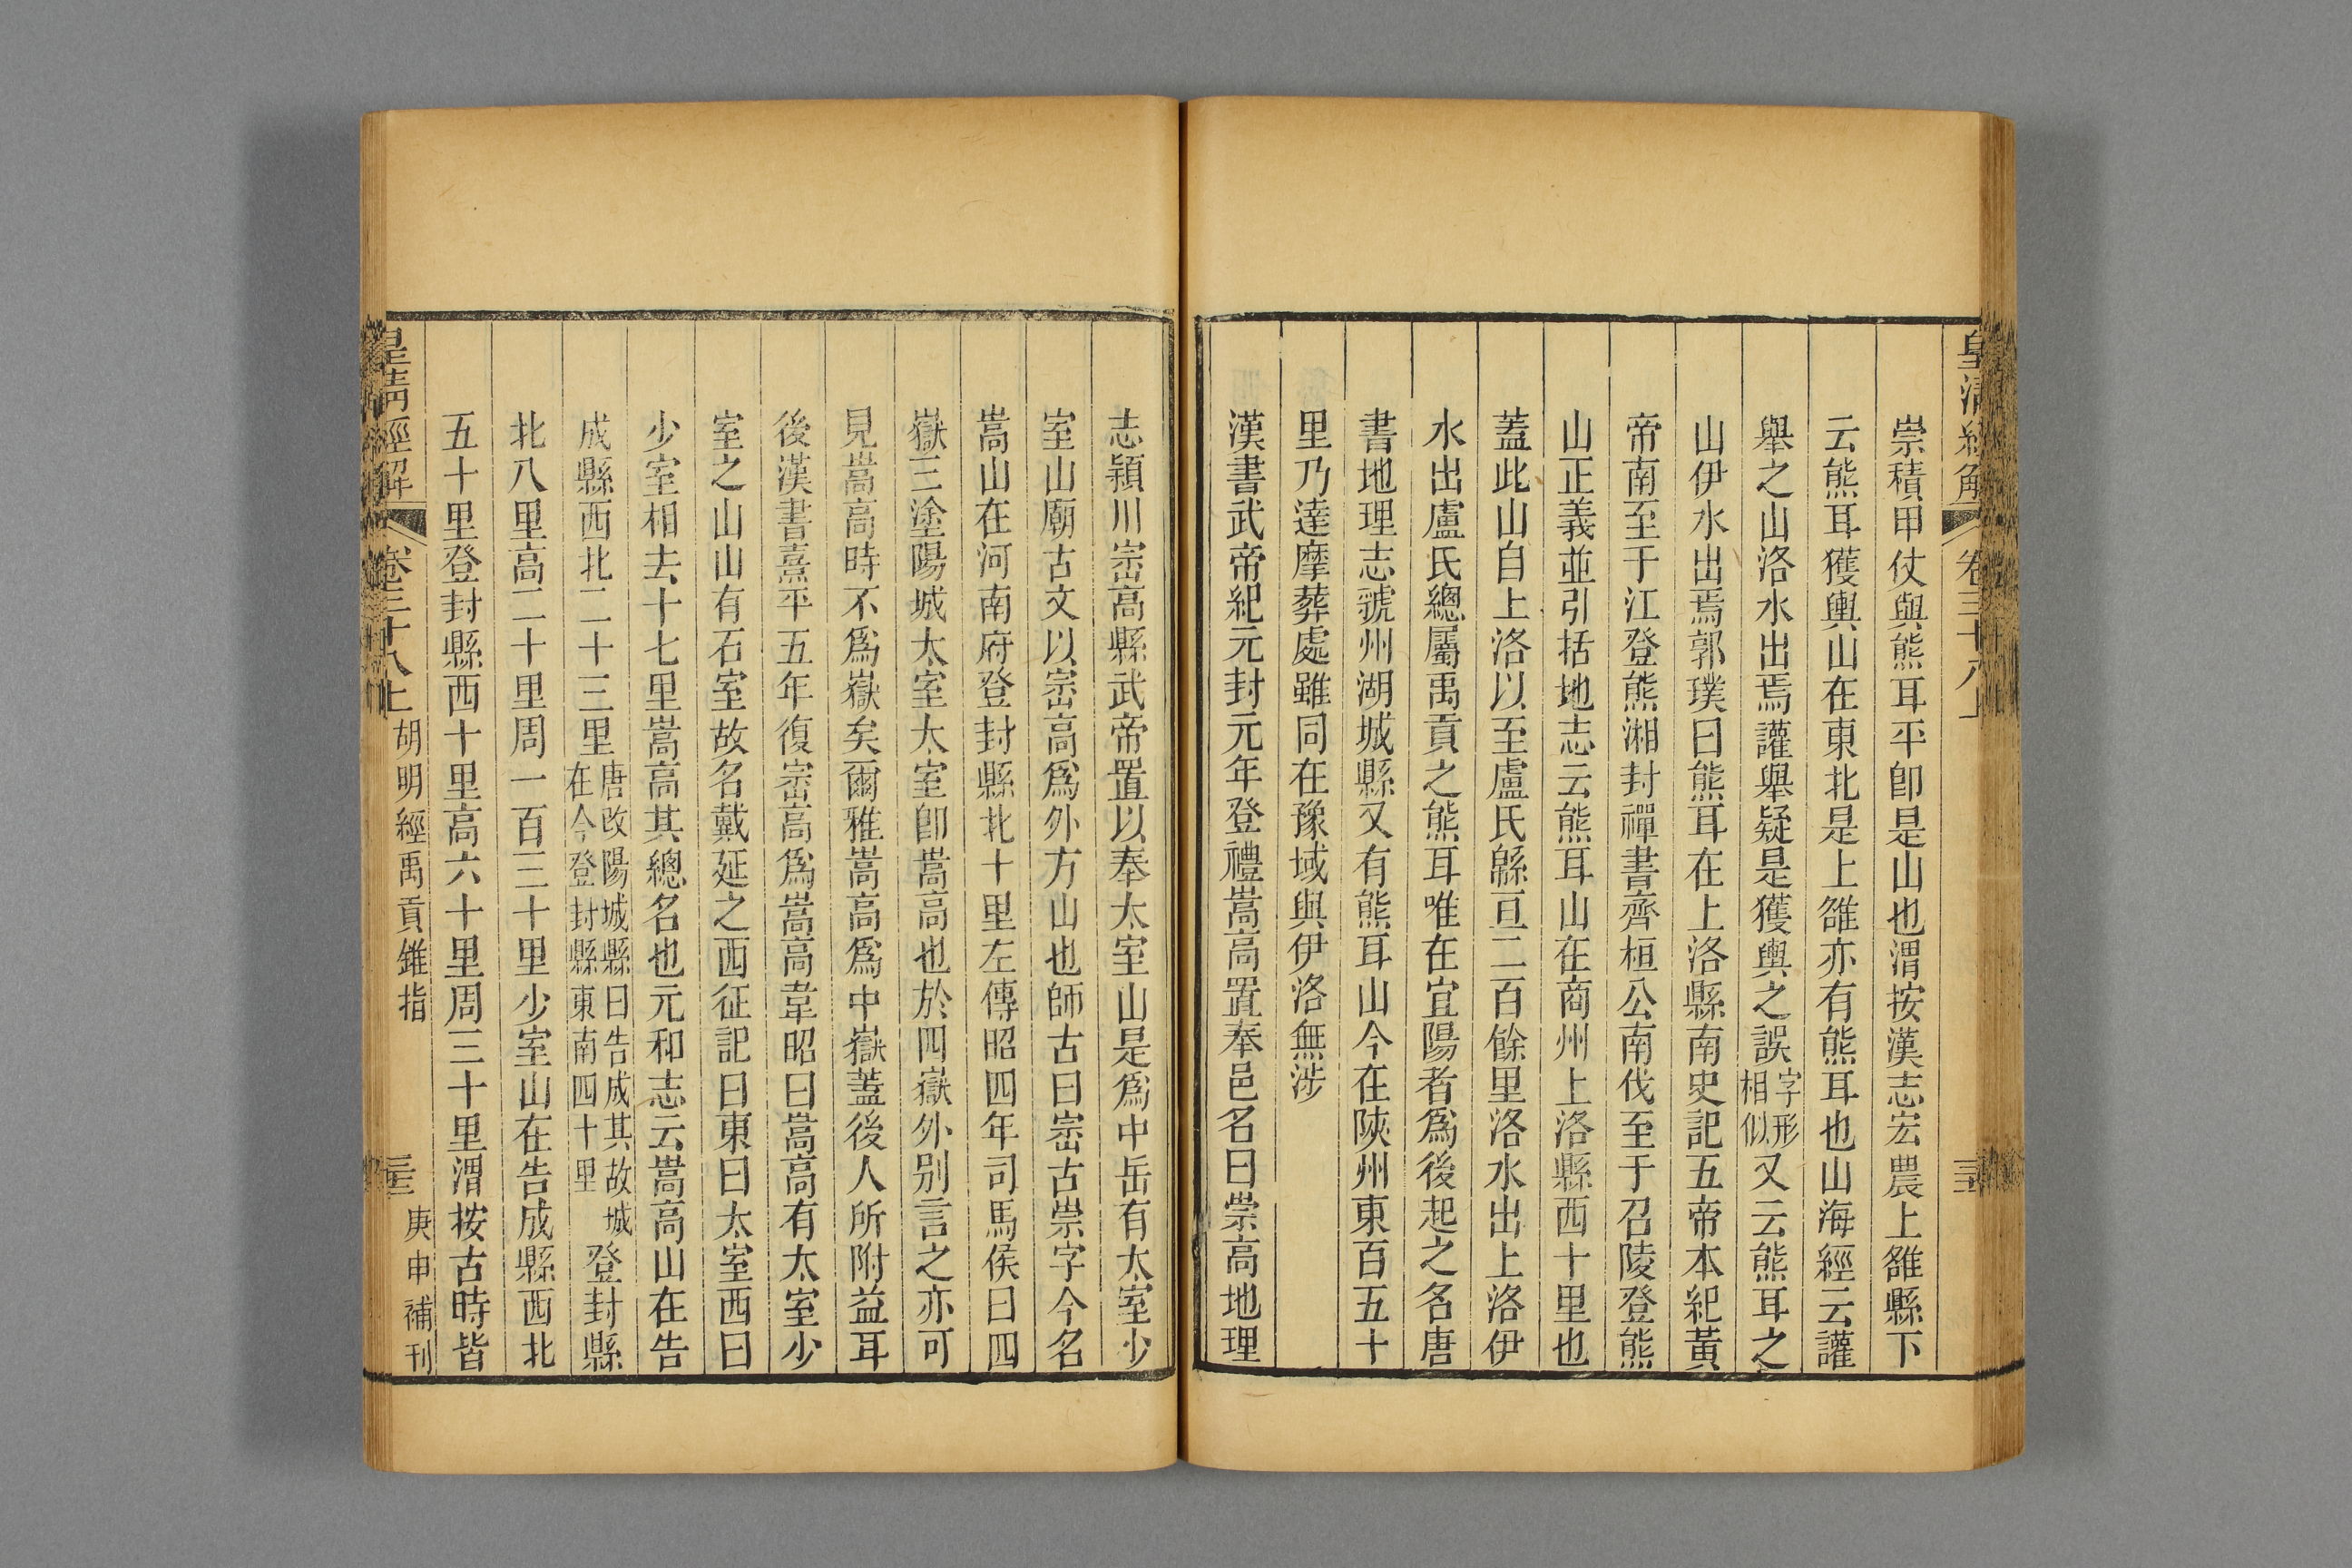 皇清經解 卷三十八上
崇積甲仗與熊耳平卽是山也渭按漢志宏農上雒縣下
云熊耳獲輿山在東北是上雒亦有熊耳也山海經云讙
舉之山洛水出焉讙舉疑是獲輿之誤字形相似又云熊耳之
山伊水出焉郭璞曰熊耳在上洛縣南史記五帝本紀黃
帝南至于江登熊湘封禪書齊桓公南伐至于召陵登熊
山正義並引括地志云熊耳山在商州上洛縣西十里也
蓋此山自上洛以至盧氏緜亘二百餘里洛水出上洛伊
水出盧氏總屬禹貢之熊耳唯在宜陽者爲後起之名唐
書地理志虢州湖城縣又有熊耳山今在陝州東百五十
里乃達摩葬處雖同在豫域與伊洛無涉
漢書武帝紀元封元年登禮嵩高置奉邑名曰崇高地理
志穎川崈高縣武帝置以奉太室山是爲中岳有太室少
室山廟古文以崈高爲外方山也師古曰崈古崇字今名
嵩山在河南府登封縣北十里左傳昭四年司馬侯曰四
嶽三塗陽城太室太室卽嵩高也於四嶽外別言之亦可
見嵩高時不爲嶽矣爾雅嵩高爲中嶽蓋後人所附益耳
後漢書熹平五年復崈高爲嵩高韋昭曰嵩高有太室少
室之山山有石室故名戴延之西征記曰東曰太室西曰
少室相去十七里嵩高其總名也元和志云嵩高山在告
成縣西北二十三里唐改陽城縣曰告成其故城在今登封縣東南四十里登封縣
北八里高二十里周一百三十里少室山在告成縣西北
五十里登封縣西十里高六十里周三十里渭按古時皆
皇清經解 卷三十八上 胡明經禹貢錐指 庚申補刊